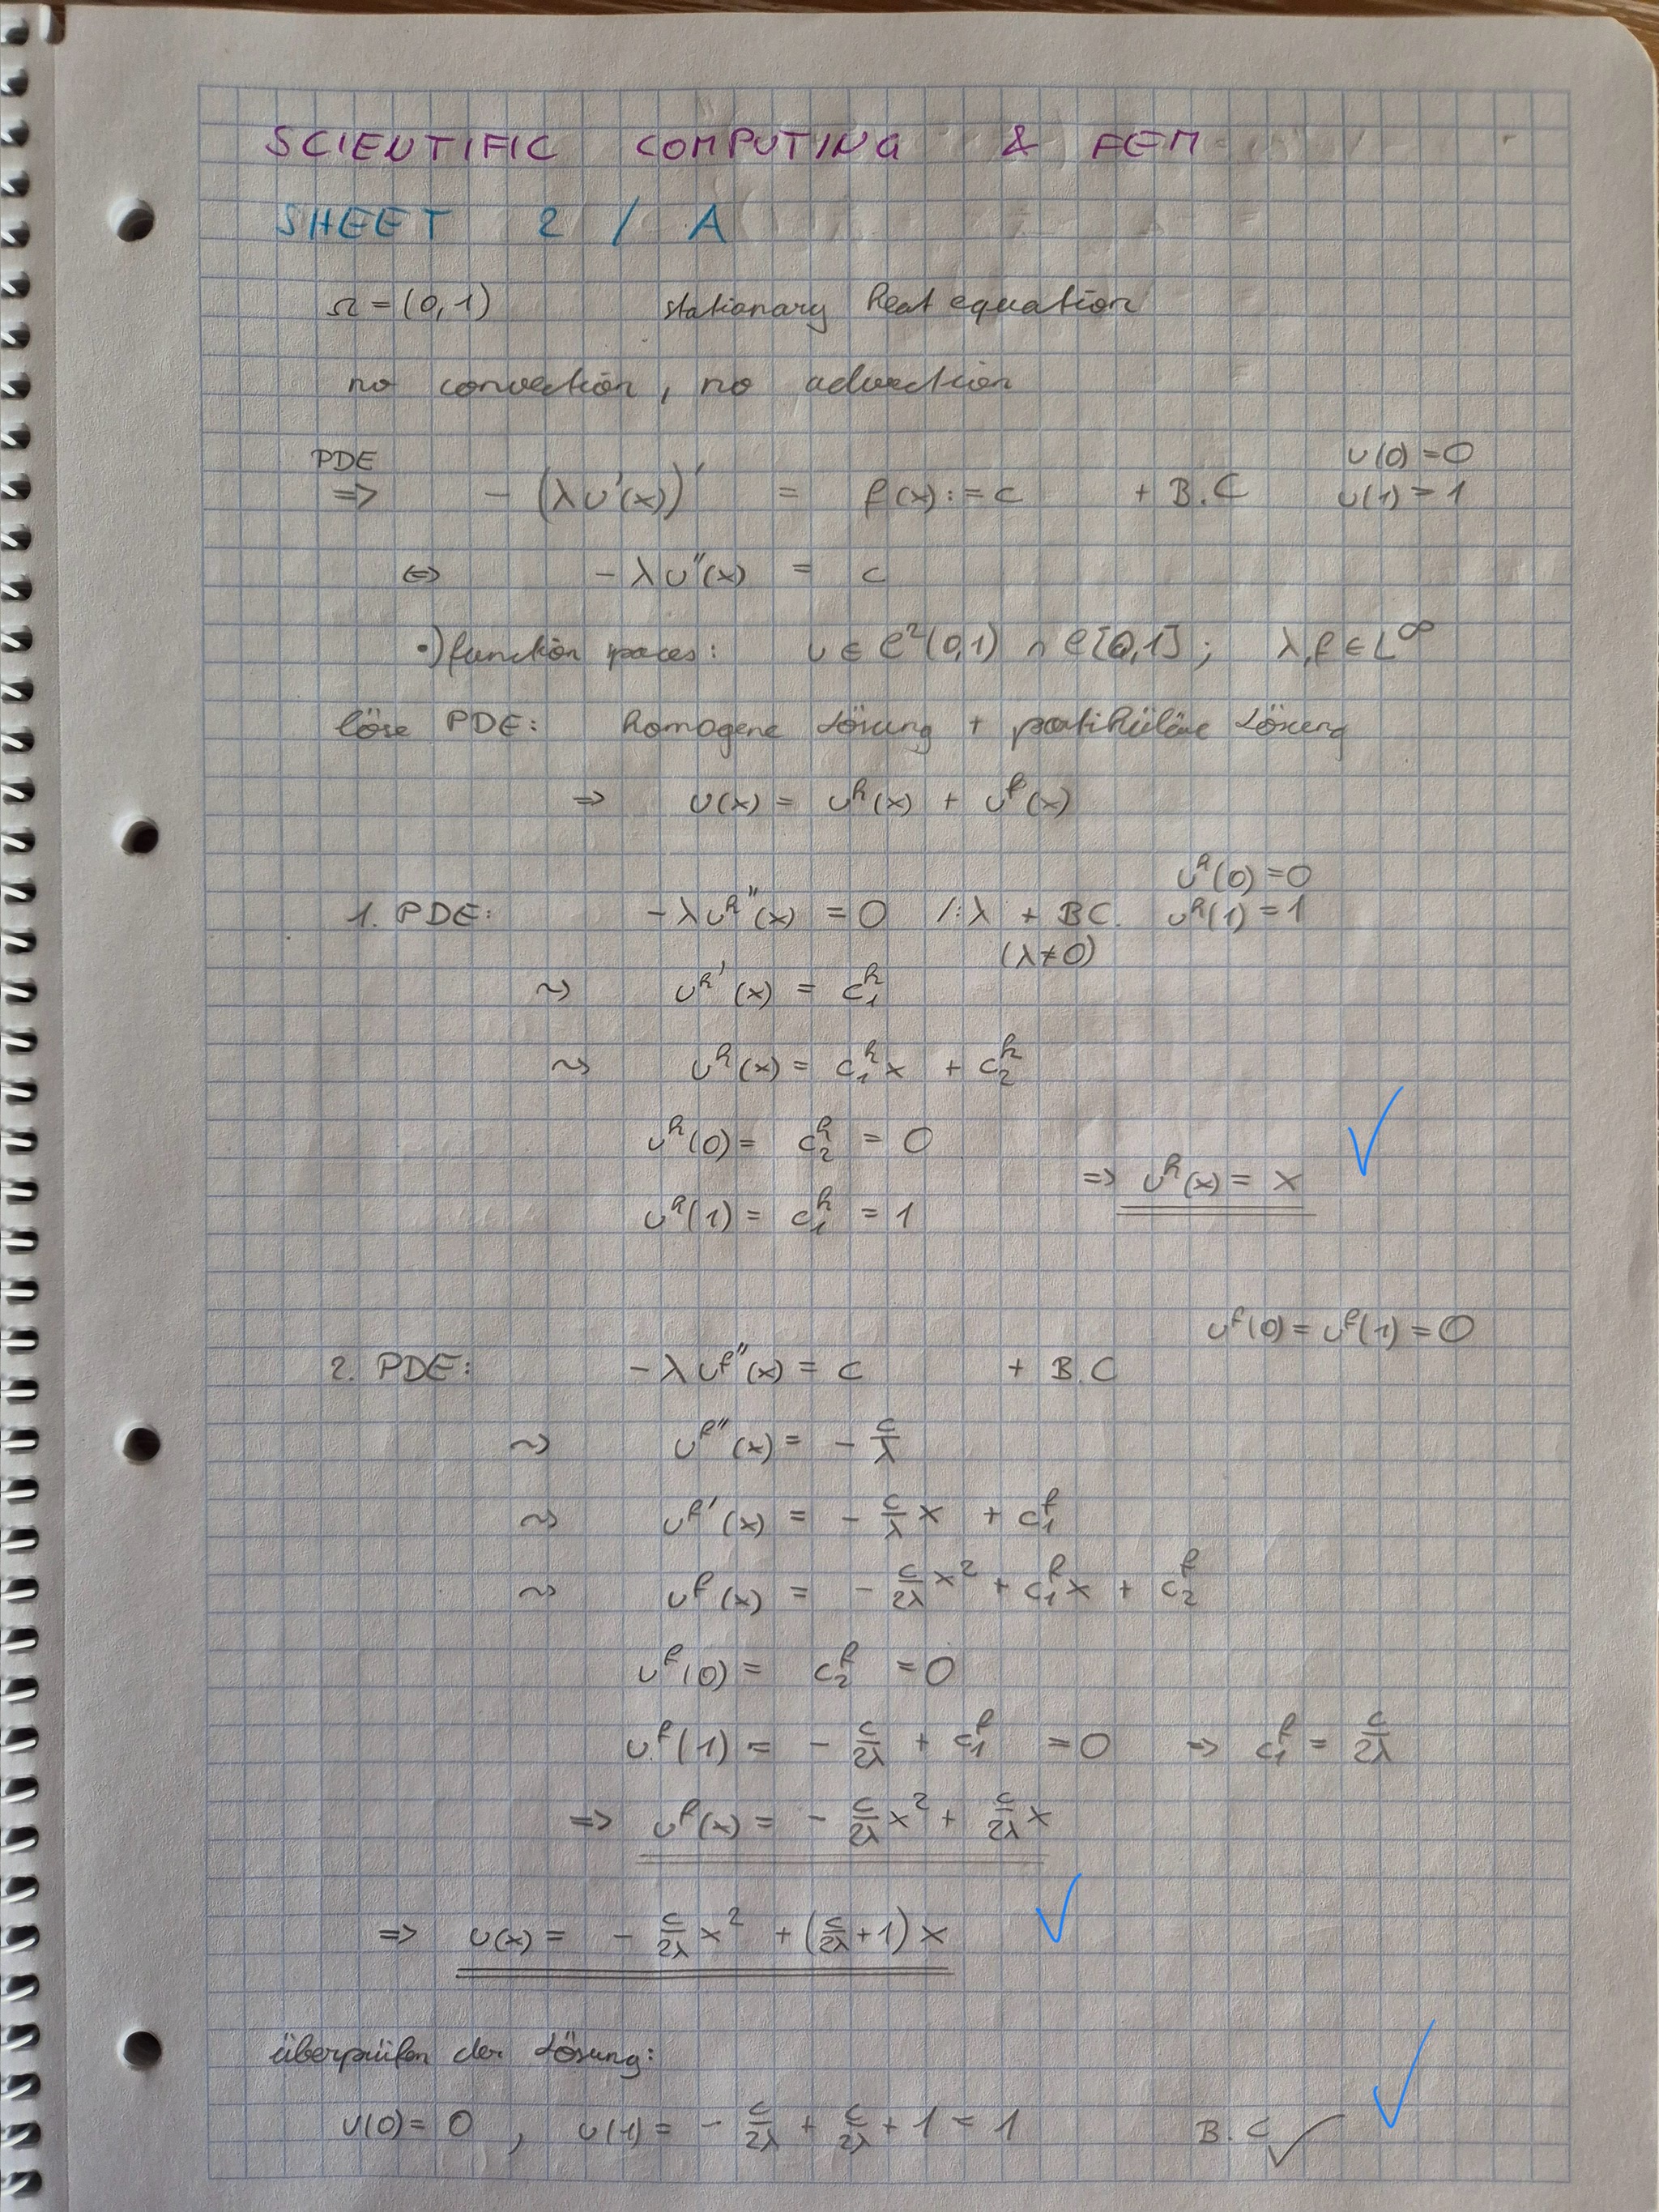 SCIENTIFIC COMPUTING & FEM
SHEET 2 / A
Ω = (0,1) stationary heat equation
no convection, no advection
PDE
=> - (λ u'(x))' = f(x) := c + B.C u(0) = 0
u(1) = 1
<=> - λ u''(x) = c
•) function spaces: u ∈ C²(0,1) ∩ C[0,1]; λ, f ∈ L^∞
löse PDE: homogene Lösung + partikuläre Lösung
=> u(x) = u^h(x) + u^f(x)
1. PDE: - λ u^h''(x) = 0 /:λ + B.C. u^h(0) = 0
u^h(1) = 1
(λ ≠ 0)
~> u^h'(x) = c_1^h
~> u^h(x) = c_1^h x + c_2^h
u^h(0) = c_2^h = 0
=> u^h(x) = x ✓
u^h(1) = c_1^h = 1
u^f(0) = u^f(1) = 0
2. PDE: - λ u^f''(x) = c + B.C
~> u^f''(x) = - c/λ
~> u^f'(x) = - c/λ x + c_1^f
~> u^f(x) = - c/2λ x² + c_1^f x + c_2^f
u^f(0) = c_2^f = 0
u^f(1) = - c/2λ + c_1^f = 0 => c_1^f = c/2λ
=> u^f(x) = - c/2λ x² + c/2λ x
=> u(x) = - c/2λ x² + (c/2λ + 1) x ✓
überprüfen der Lösung:
u(0) = 0 , u(1) = - c/2λ + c/2λ + 1 = 1 B.C ✓ ✓